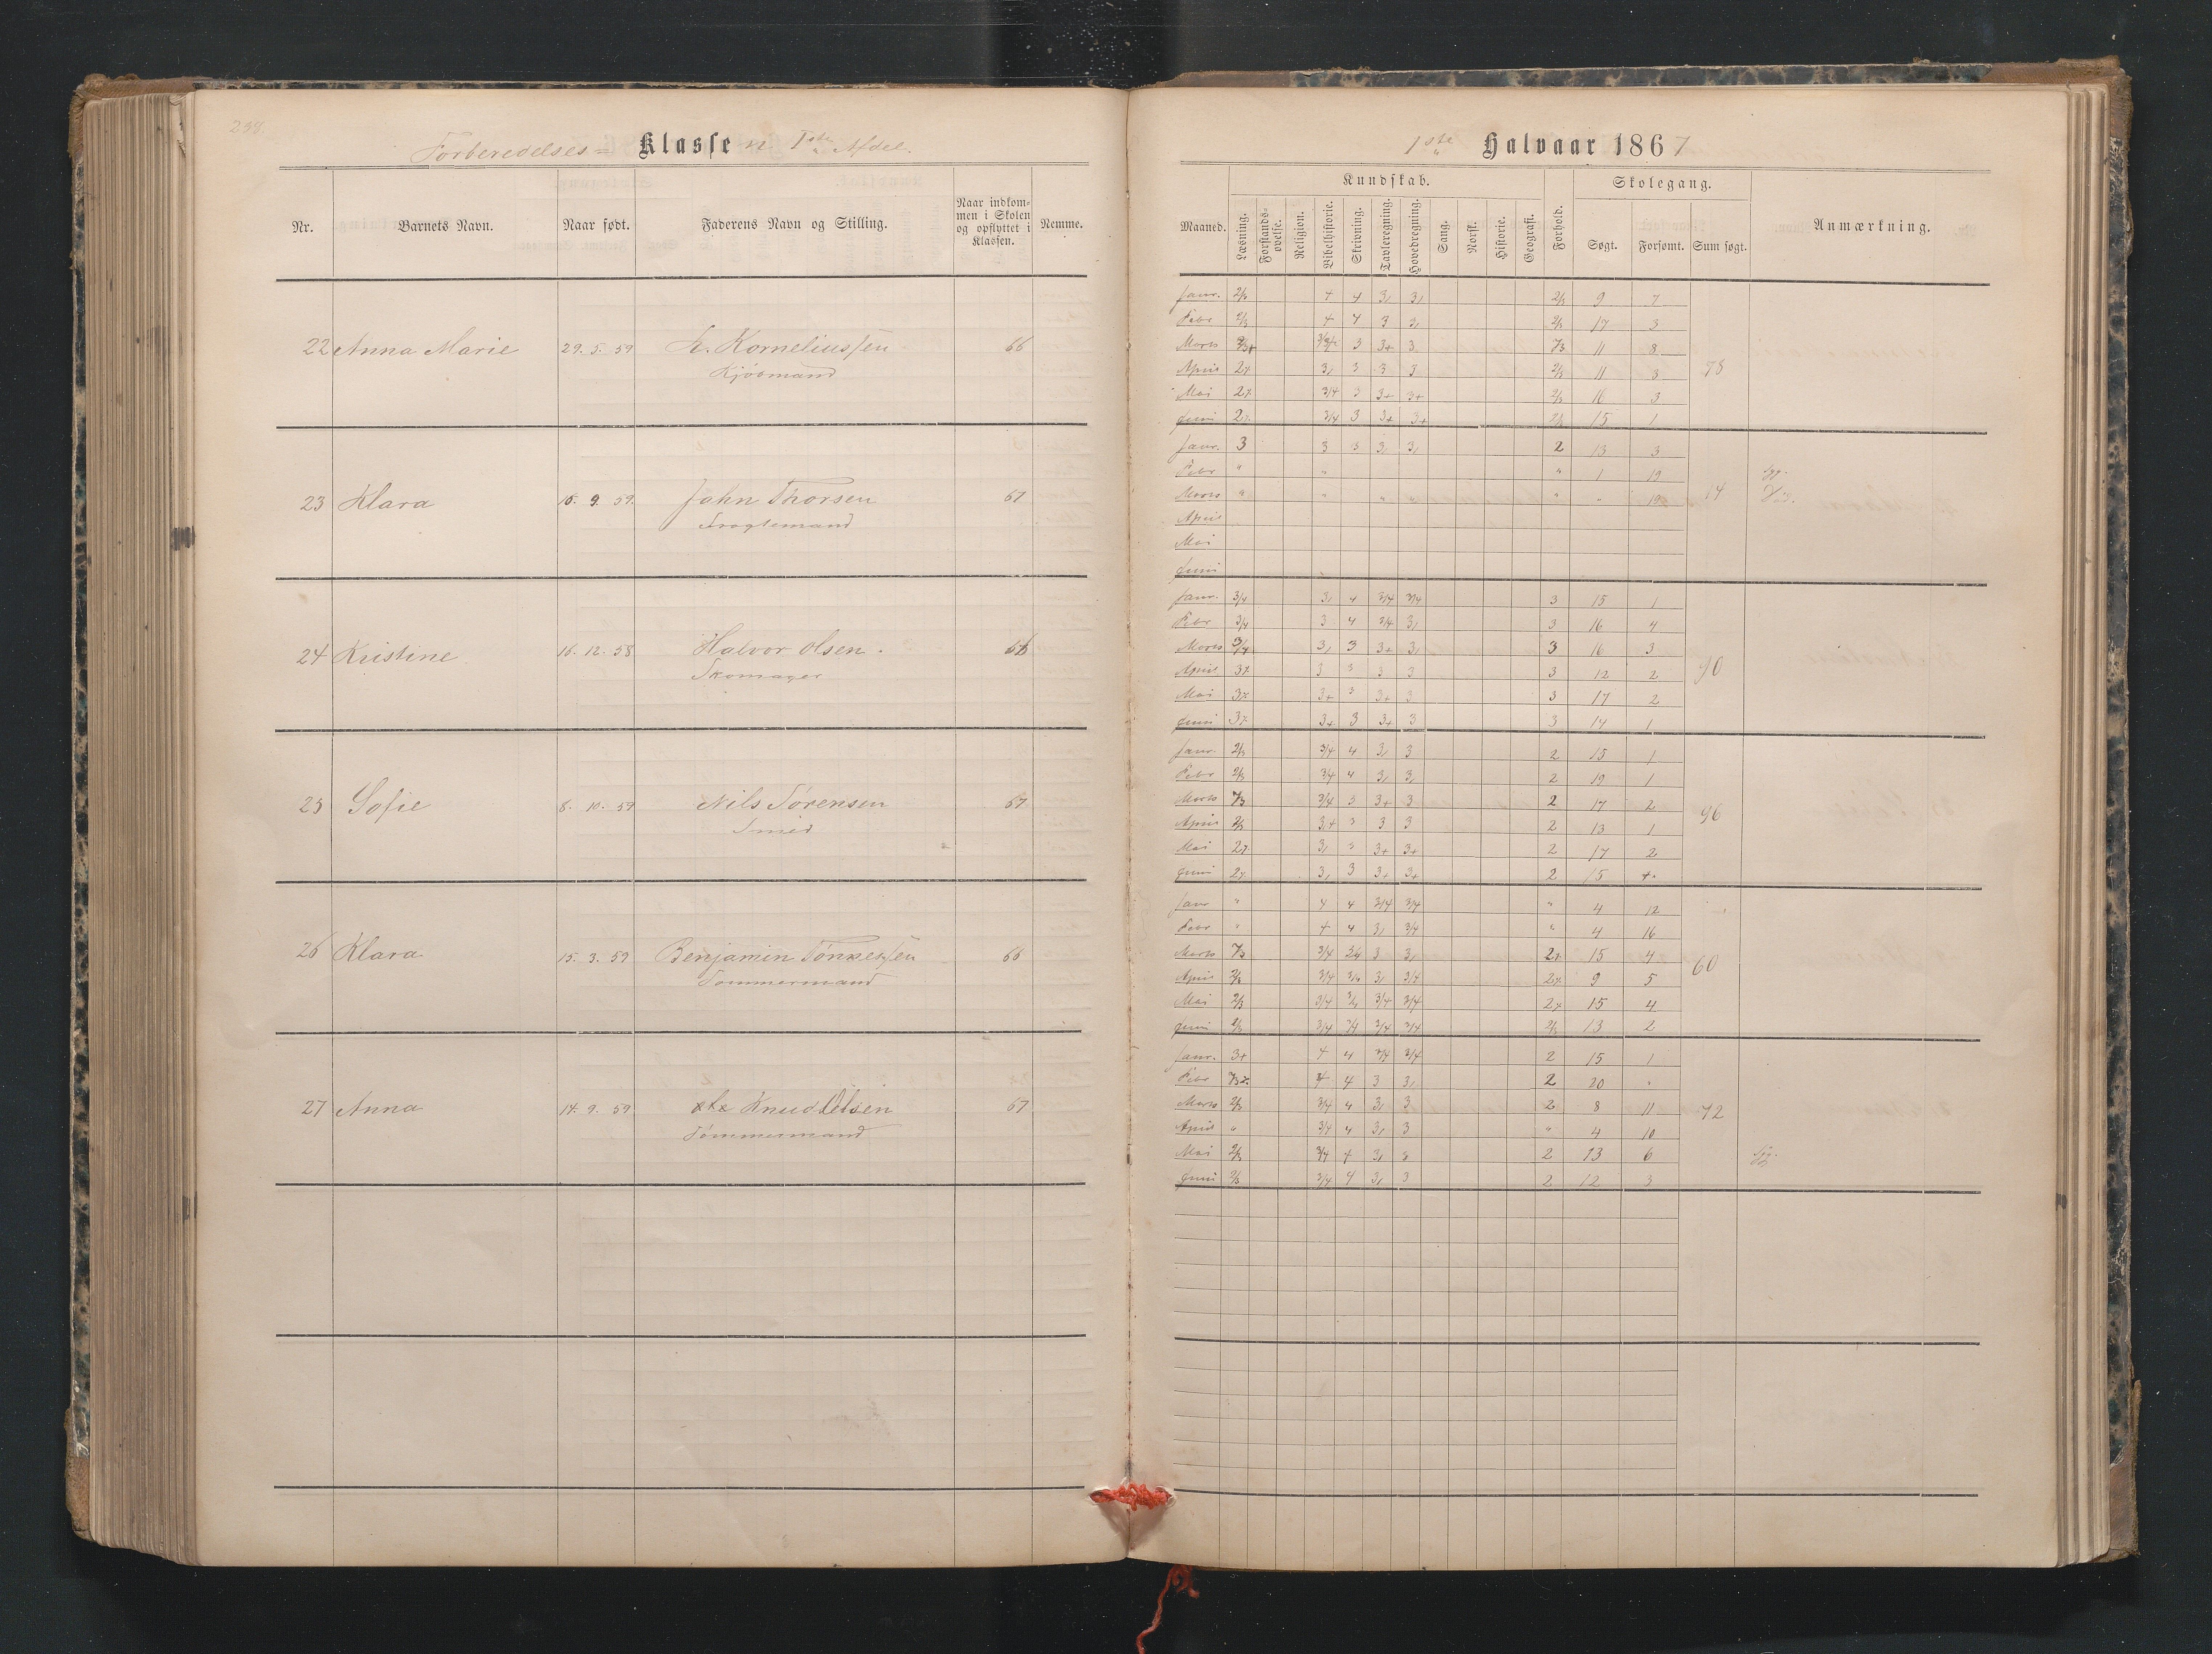 238.
Forberedelses= Klasse n 1ste Afdel.
Nr. Barnets Navn. Naar født. Faderens Navn og Stilling. Naar indkommen i Skolen og opflyttet i Klassen. Nemme.
22 Anna Marie 29. 5. 59 Korneliussen 66
Kjøbmand
23 Klara 9. 59. John Thorsen 67
24 Kristine 16. 12. 58 Halvor Olsen.
Skomager
25 Sofie 8. 10. 59 Nils Sørensen 67
Smid
26 Klara 15. 3. 59 Benjamin Tønnessen 66
Tømmermand
27 Anna 14. 9. 59 Knudsen 67
Tømmermand
1ste Halvaar 1867
Maaned. Kundskab. Forhold. Skolegang. Anmærkning.
Læsning. Forstandsøvelse. Religion. Bibelhistorie. Skrivning. Tavleregning. Hovedregning. Sang. Norsk. Historie. Geografi. Søgt. Forsømt. Sum søgt.
Janr. 2/3 4 4 3, 3, 2/3 9 7
Febr 2/3 4 4 3 3, 2/3 17 3
Marts 3 3+ 3 11 8
April 3, 3 3 3 2/3 11 3
Mai 3/4 3 3+ 3+ 2/3 16 3
Juni 3/4 3 3+ 3+ 2/3 15 1
Janr. 3 3 3 3, 3, 2 13 3
Febr " " " 1 19
Marts " " " " " " 19 14
April
Mai
Juni
Janr. 3/4 3, 4 3/4 3/4 3 15 1
Febr 3/4 3 4 3/4 3, 3 16 4
Marts 3/4 3, 3 3+ 3, 3 16 3
April 3 3 3 3 3 12 2 90
Mai 3+ 3 3+ 3 3 17 2
Juni 3+ 3 3+ 3 3 14 1
Janr. 2/3 3/4 4 3, 3 2 15 1
Febr 2/3 3/4 4 3, 3, 2 19 1
Marts 3/4 3 3+ 3 2 17 2
April 2/3 3 3 3 2 13 1 96
Mai 3, 3 3+ 3+ 2 17 2
Juni 3, 3 3+ 3+ 2 15
Janr " 4 4 3/4 3/4 " 4 12
Febr " 4 4 3, 3/4 " 4 16
Marts 3/4 3 3, 15 4
April 2/3 3/4 3, 3/4 9 5 60
Mai 2/3 3/4 3/4 3/4 15 4
Juni 2/3 3/4 3/4 3/4 3/4 2/3 13 2
Janr. 3+ 4 4 3/4 3/4 2 15 1
Febr 4 4 3 3, 2 20 "
Marts 2/3 3/4 4 3, 3 2 8 11 72
April " 3/4 4 3, 3 " 4 10
Mai 2/3 3/4 4 3, 3 2 13 6
Juni 2/3 3/4 4 3, 3 2 12 3